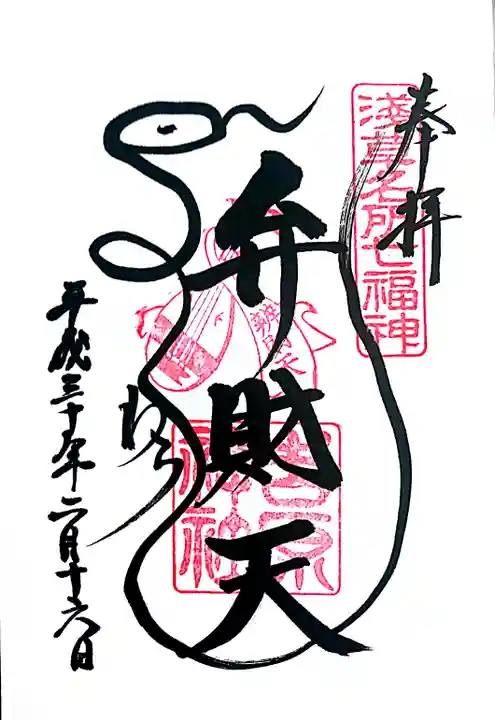 奉拝
淺草名所七福神
弁財天
吉原神社
平成三十年二月十六日